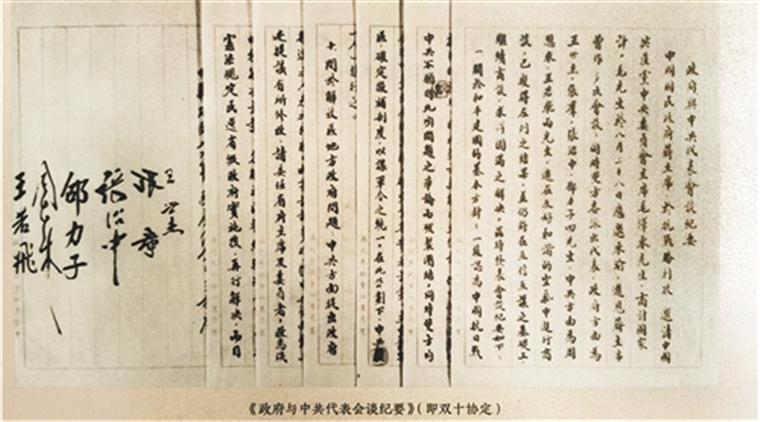 政府與中共代表會談紀要
中國國民政府蔣主席於抗戰勝利後邀請中國
共產黨中央委員會主席毛澤東先生，商討國家
計，毛先生於八月二十八日應邀來渝，進見蔣主席
曾作多次會談，同時雙方各派出代表，政府方面為
王世杰，張羣，張治中，邵力子四先生，中共方面為周
恩來，王若飛兩先生，迭在友好和諧的空氣中進行商
談，已獲得左列之結果，並仍將在互信互讓之基礎上，
繼續商談，求得圓滿之解決，茲特發表會談紀要如下：
一、關於和平建國的基本方針：一致認為中國抗日戰
中共不願因此項問題之爭論而破裂團結，同時雙方均
區，確定徵補制度，以謀軍令之統一。在此計劃下，中共
十、關於解放區地方政府問題：中共方面提出政府
提議有所修改，請委任省府主席及委員者，改為依
憲法規定民選省級政府實施後，再行解決，而目
王世杰
張羣
張治中
邵力子
周恩來
王若飛
《政府与中共代表会谈纪要》（即双十协定）